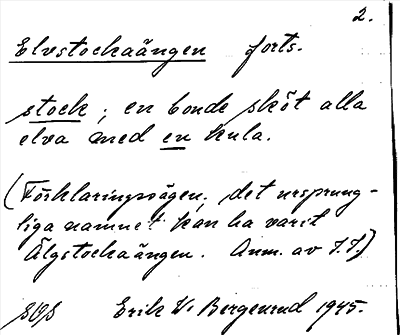 2.
Elvstockaängen forts.
stock; en bonde sköt alla
elva med en kula.
(Förklaringsvägen; det ursprung-
liga namnet kan ha varit
Älgstockaängen. Anm. av J.J.)
Erik W. Bergenrud 1945.